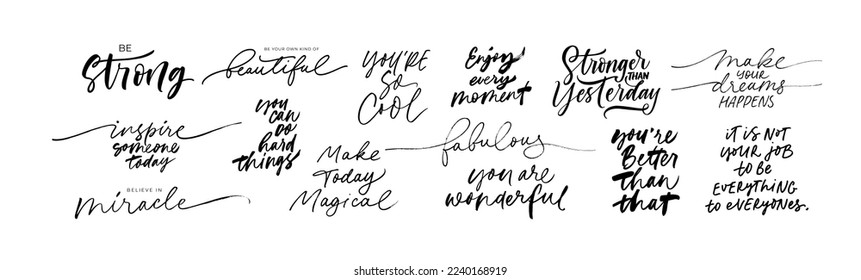 BE
Strong
BE YOUR OWN KIND OF
beautiful
YOU'RE
So
Cool
Enjoy
every
moment
Stronger
THAN
Yesterday
make
YOUR
dreams
HAPPENS
inspire
someone
today
you
can
Do
hard
things
Make
Today
Magical
fabulous
you are
wonderful
you're
Better
Than
that
it is NOT
YOUR JOB
to be
EVERYTHING
to EVERYONES.
BELIEVE IN
miracle
shutterstock.com · 2240168919